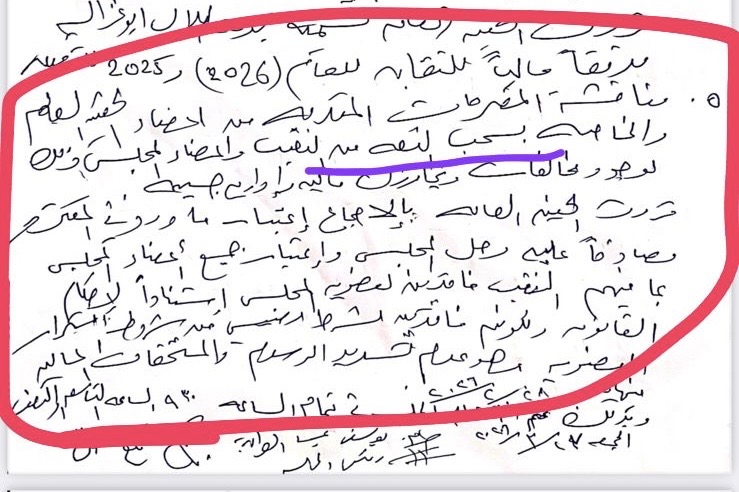 قررت الهيئة العامة بلال ابو غزالة
مدققاً مالياً للنقابة للعام (2026) و 2025
٥. مناقشة المقترحات المقدمة من أعضاء الهيئة العامة
والخاصة بسحب الثقة من نقيب وأعضاء المجلس وذلك
لوجود مخالفات وتجاوزات مالية وإدارية جسيمة
قررت الهيئة العامة بالإجماع إعتبار ما ورد في المقترح
مصادقاً عليه وحل المجلس وإعتبار جميع أعضاء المجلس
بما فيهم النقيب فاقدين لعضوية المجلس استناداً لأحكام
القانون ولكونهم فاقدين لشرط رئيسي من شروط استمرار
العضوية وهو عدم تسديد الرسوم والمستحقات المالية
في تمام الساعة ٩٣٠
رئيس الجلسة